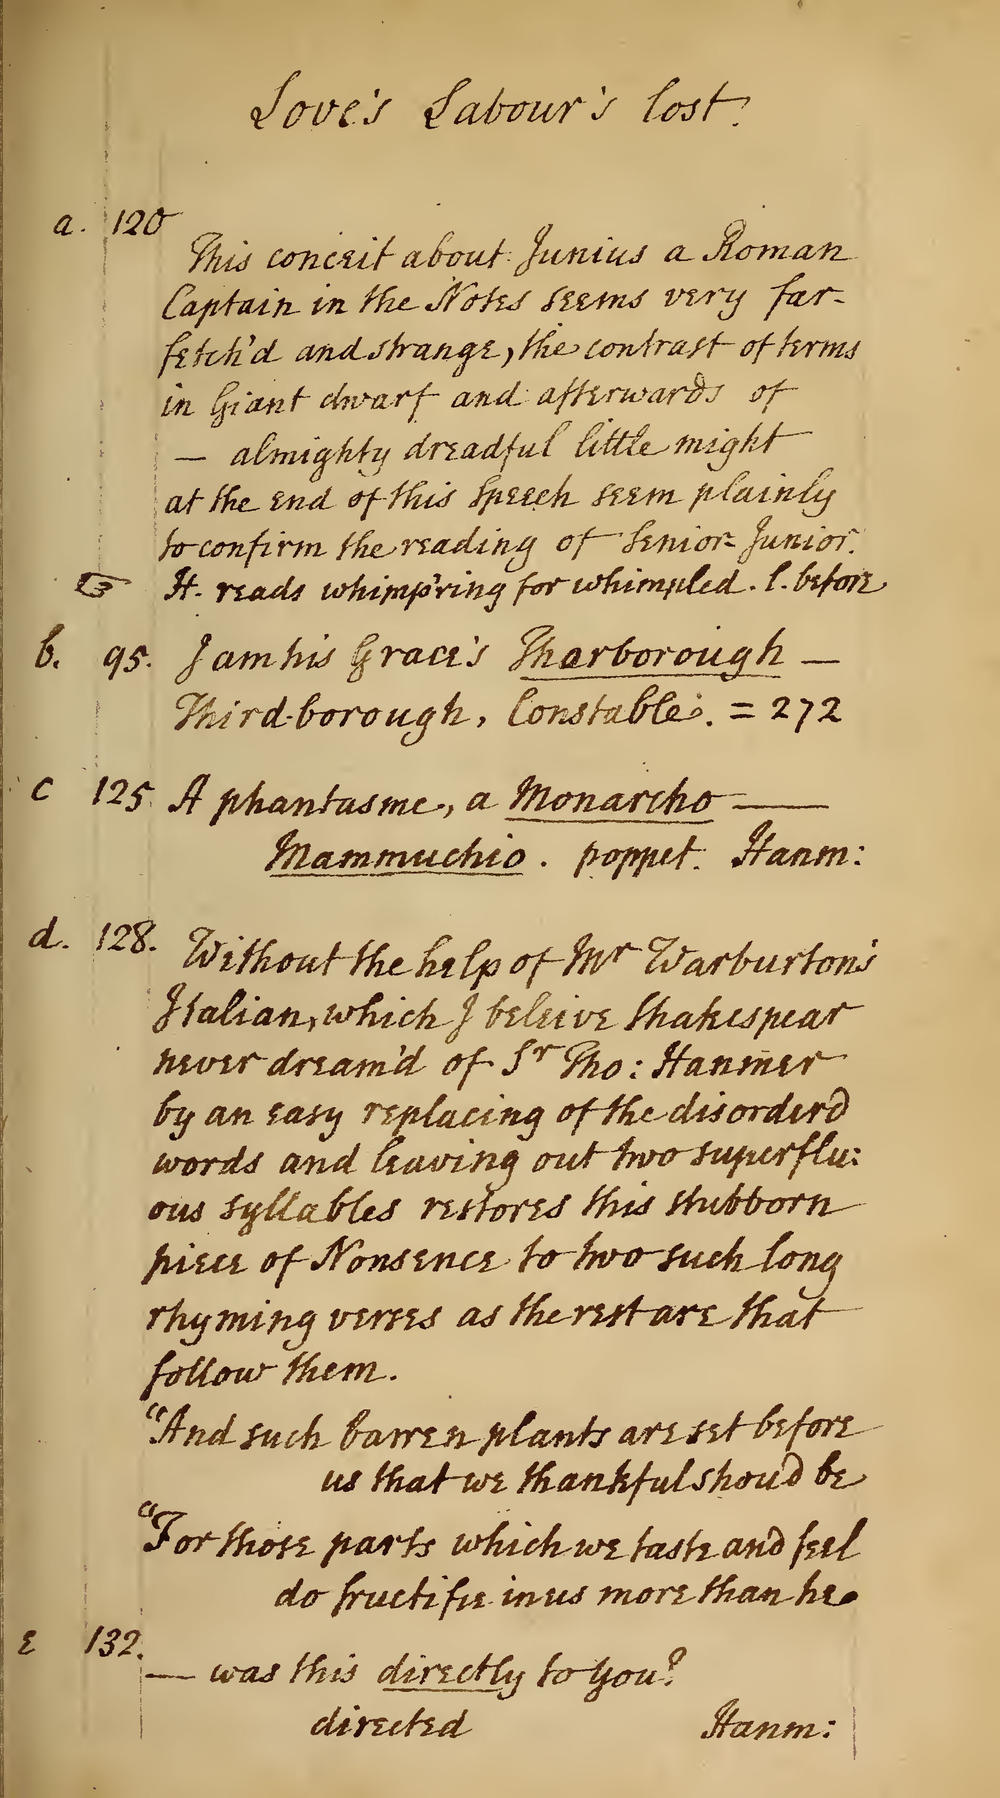 Love's Labour's lost.
a. 120
This conceit about Junius a Roman
Captain in the Notes seems very far-
fetch'd and strange, the contrast of terms
in Giant dwarf and afterwards of
— almighty dreadful little might
at the end of this Speech seem plainly
to confirm the reading of Senior-Junior.
☞ H. reads whimp'ring for whimpled. l. before
b. 95. I am his Grace's Tharborough —
Third-borough, Constable. = 272
c 125 A phantasme, a Monarcho —
Mammuchio. poppet. Hanm:
d. 128. Without the help of Mr Warburton's
Italian, which I beleive Shakespear
never dream'd of Sr Tho: Hanmer
by an easy replacing of the disorderd
words and leaving out two superflu:
ous syllables restores this stubborn
piece of Nonsence to two such long
rhyming verses as the rest are that
follow them.
"And such barren plants are set before
us that we thankful shoud be
"For those parts which we taste and feel
do fructifie in us more than he.
e 132.
— was this directly to you?
directed Hanm: